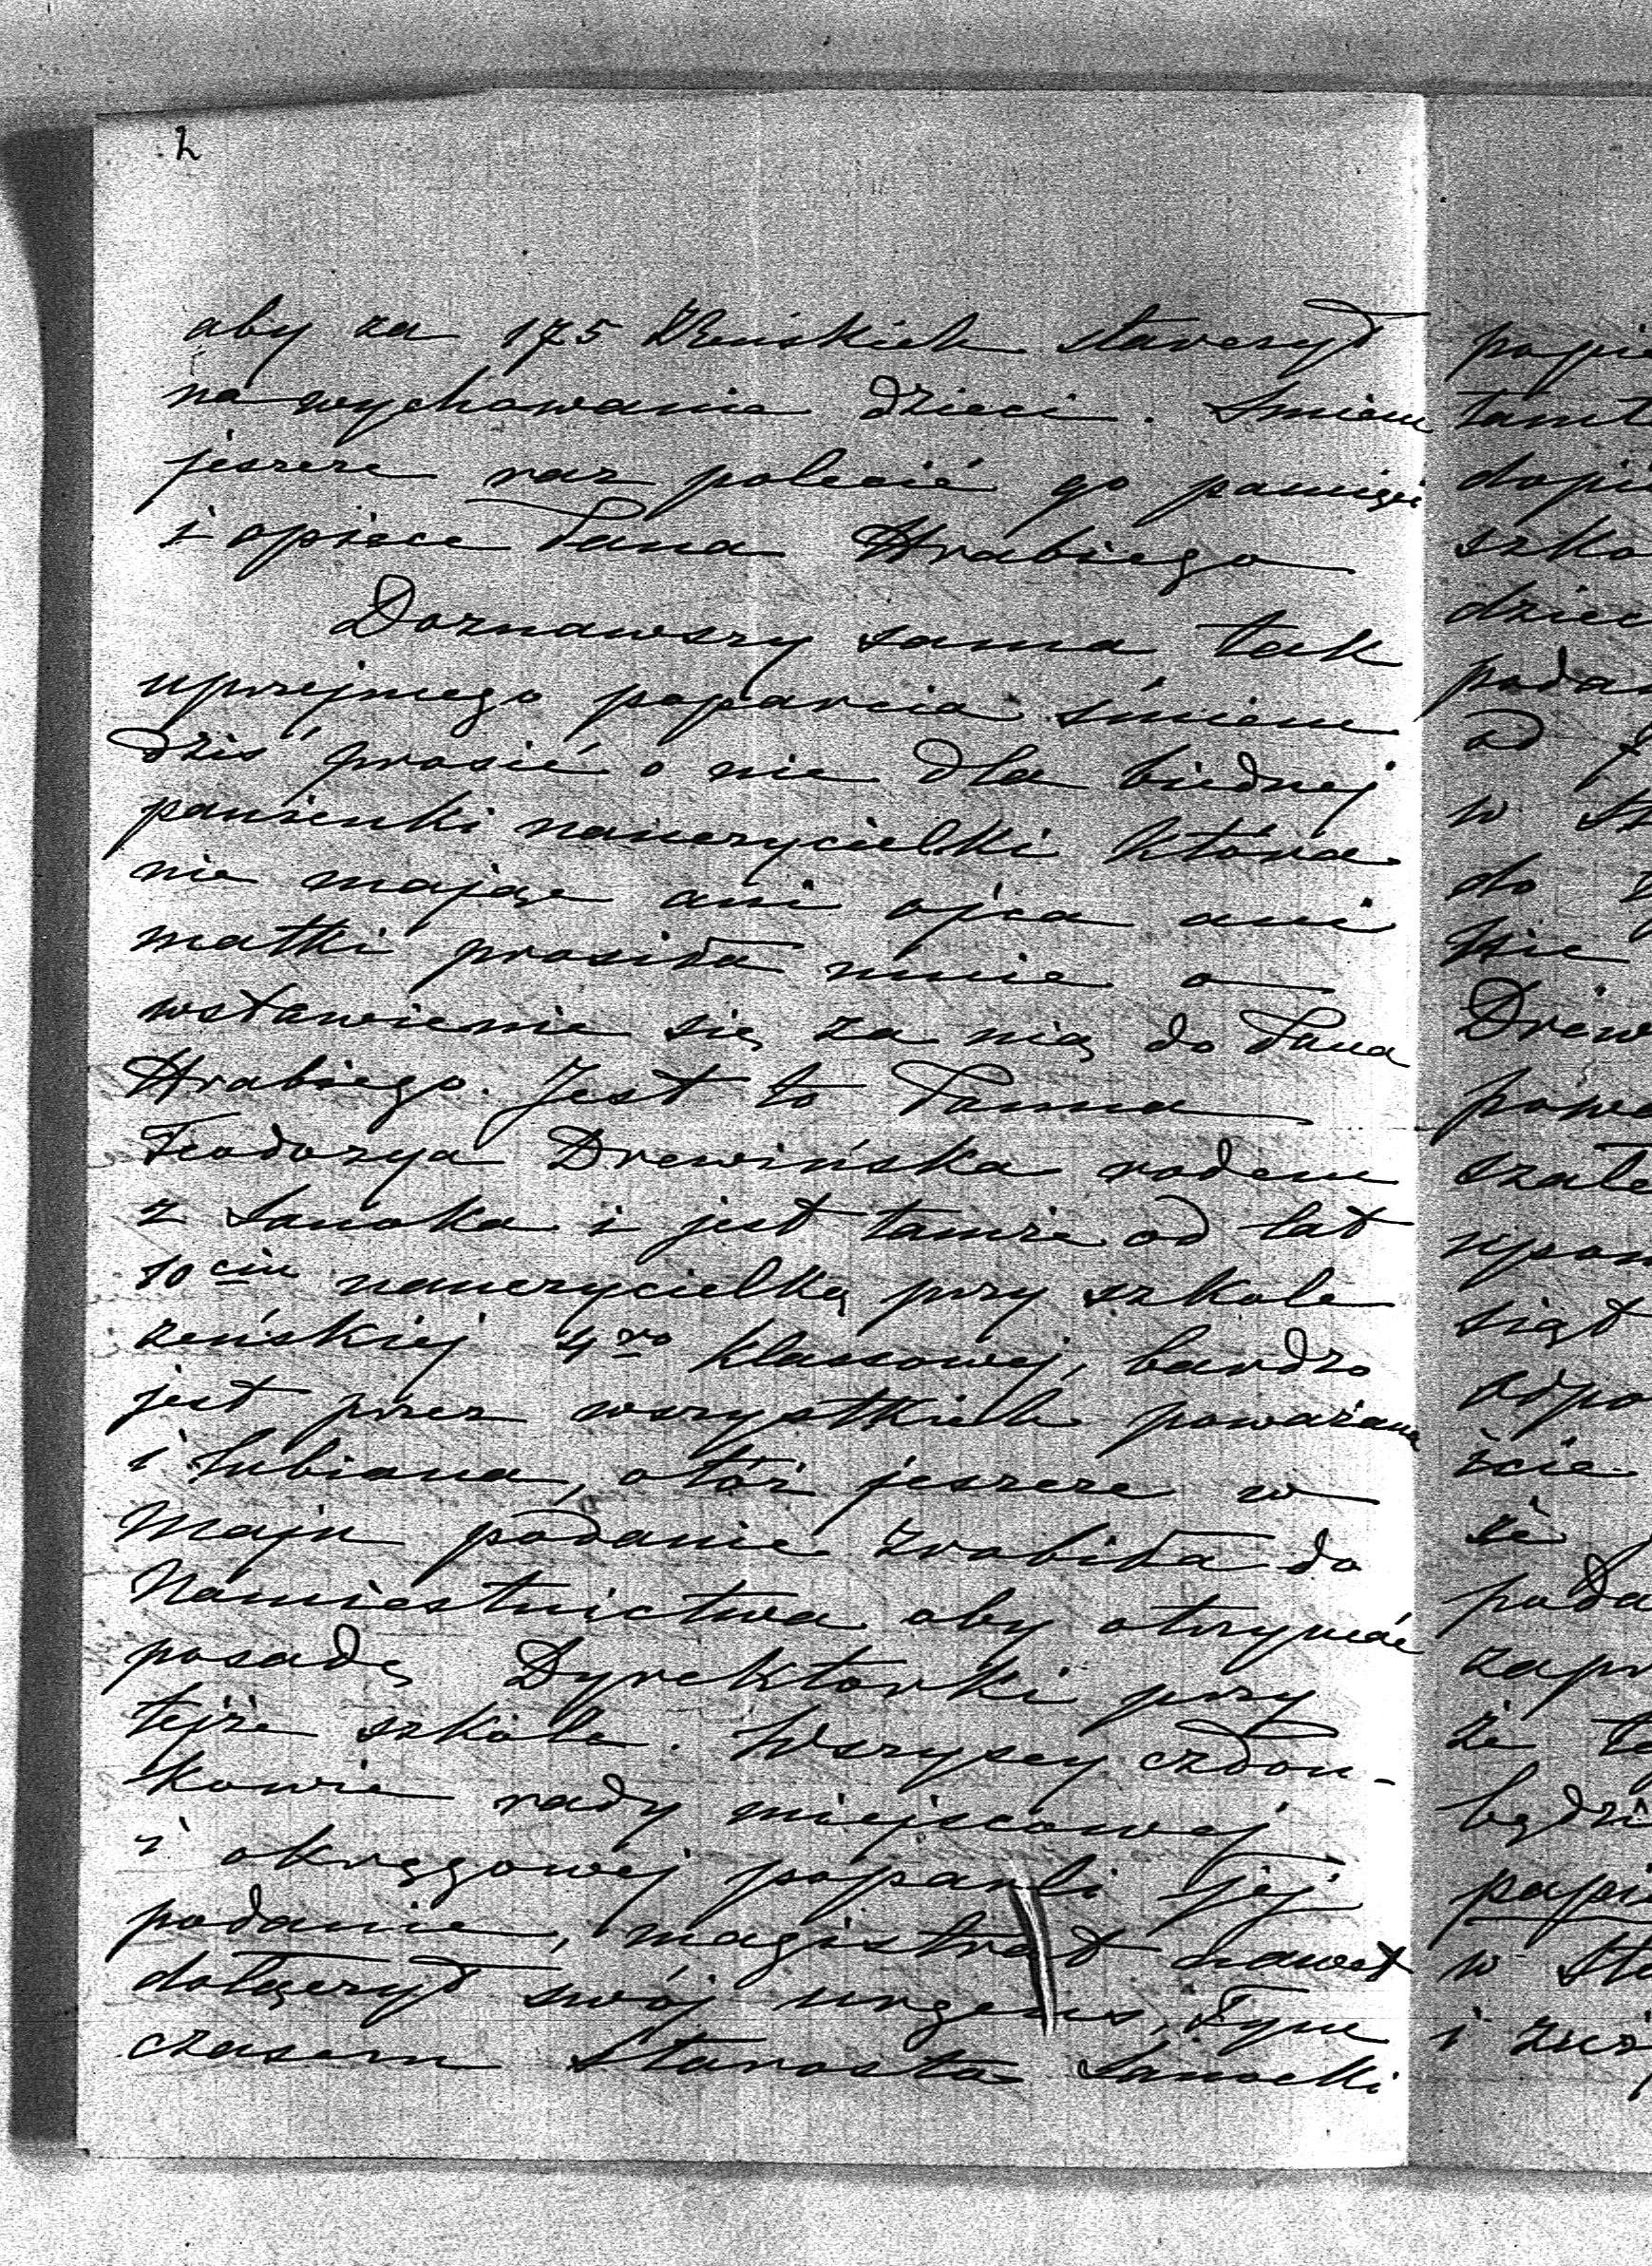 2
aby za 175 Reńskich starczył
na wychowanie dzieci. Smiem
jeszcze raz polecić go pamięci
i opiece Pana Hrabiego
Doznawszy sama tak
uprzejmego poparcia śmiem
dziś prosić o nie dla biednej
panienki nauczycielki która
nie mając ani ojca ani
matki prosiła mnie o
wstawienie się za nią do Pana
Hrabiego. Jest to Panna
Teodozya Drewińska rodem
z Sanoka i jest tamże od lat
10ciu nauczycielką przy szkole
żeńskiej 4ro klassowej, bardzo
jest przez wszystkich poważana
i lubiana, otóż jeszcze w
Maju podanie zrobiła do
Namiestnictwa aby otrzymać
posadę Dyrektorki przy
tejże szkole. Wszyscy człon-
kowie rady miejscowej
i okręgowej poparli jej
podanie, magistrat nawet
dołączył swój urgens, Tym
czasem Starosta Sanocki